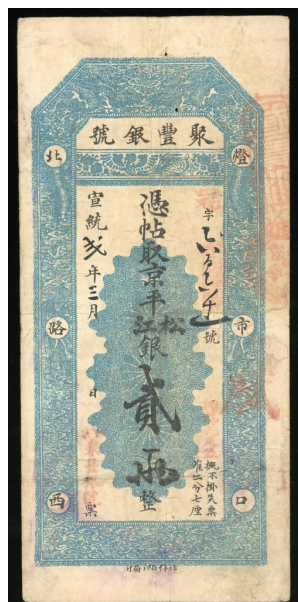 聚豐銀號
燈市口
北路西
字 號
憑帖取京平
松江銀
貳兩整
宣統弍年三月 日 票
概不掛失票
准二分七厘